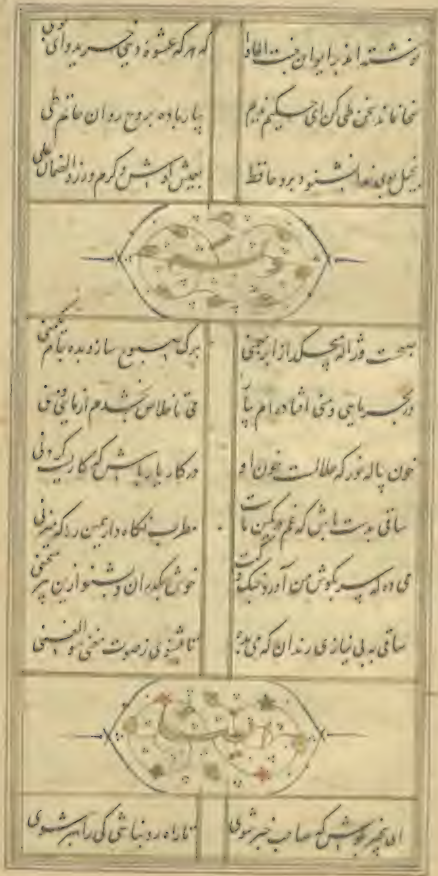 نوشته اند بر ایوان جنت الماوی که هر که عشوه دنیی خرید وای بوی
سخا نماند سخن طی کن ای حکیم بیار باده بروح روان حاتم طی
بخیل بوی خدا نشنود برو حافظ بعیش و کرم ورز والضمان علی
صبحست و ژاله میچکد از ابر بهمنی برگ صبوح ساز و بده جام یکمنی
در بحر مایی و منی افتاده ام بیار می تا خلاص بخشدم از مایی و منی
خون پیاله خور که حلالست خون او در کار یار باش که کاریست کردنی
ساقی بدست باش که غم در کمین ماست مطرب نگاه دار همین ره که میزنی
می ده که سر بگوش من آورد چنگ و گفت خوش بگذران و بشنو ازین پیر منحنی
ساقی به بی نیازی رندان که می بده تا بشنوی ز صوت مغنی هو الغنی
ایضا
ای بیخبر بکوش که صاحب خبر شوی تا راه رو نباشی کی راهبر شوی